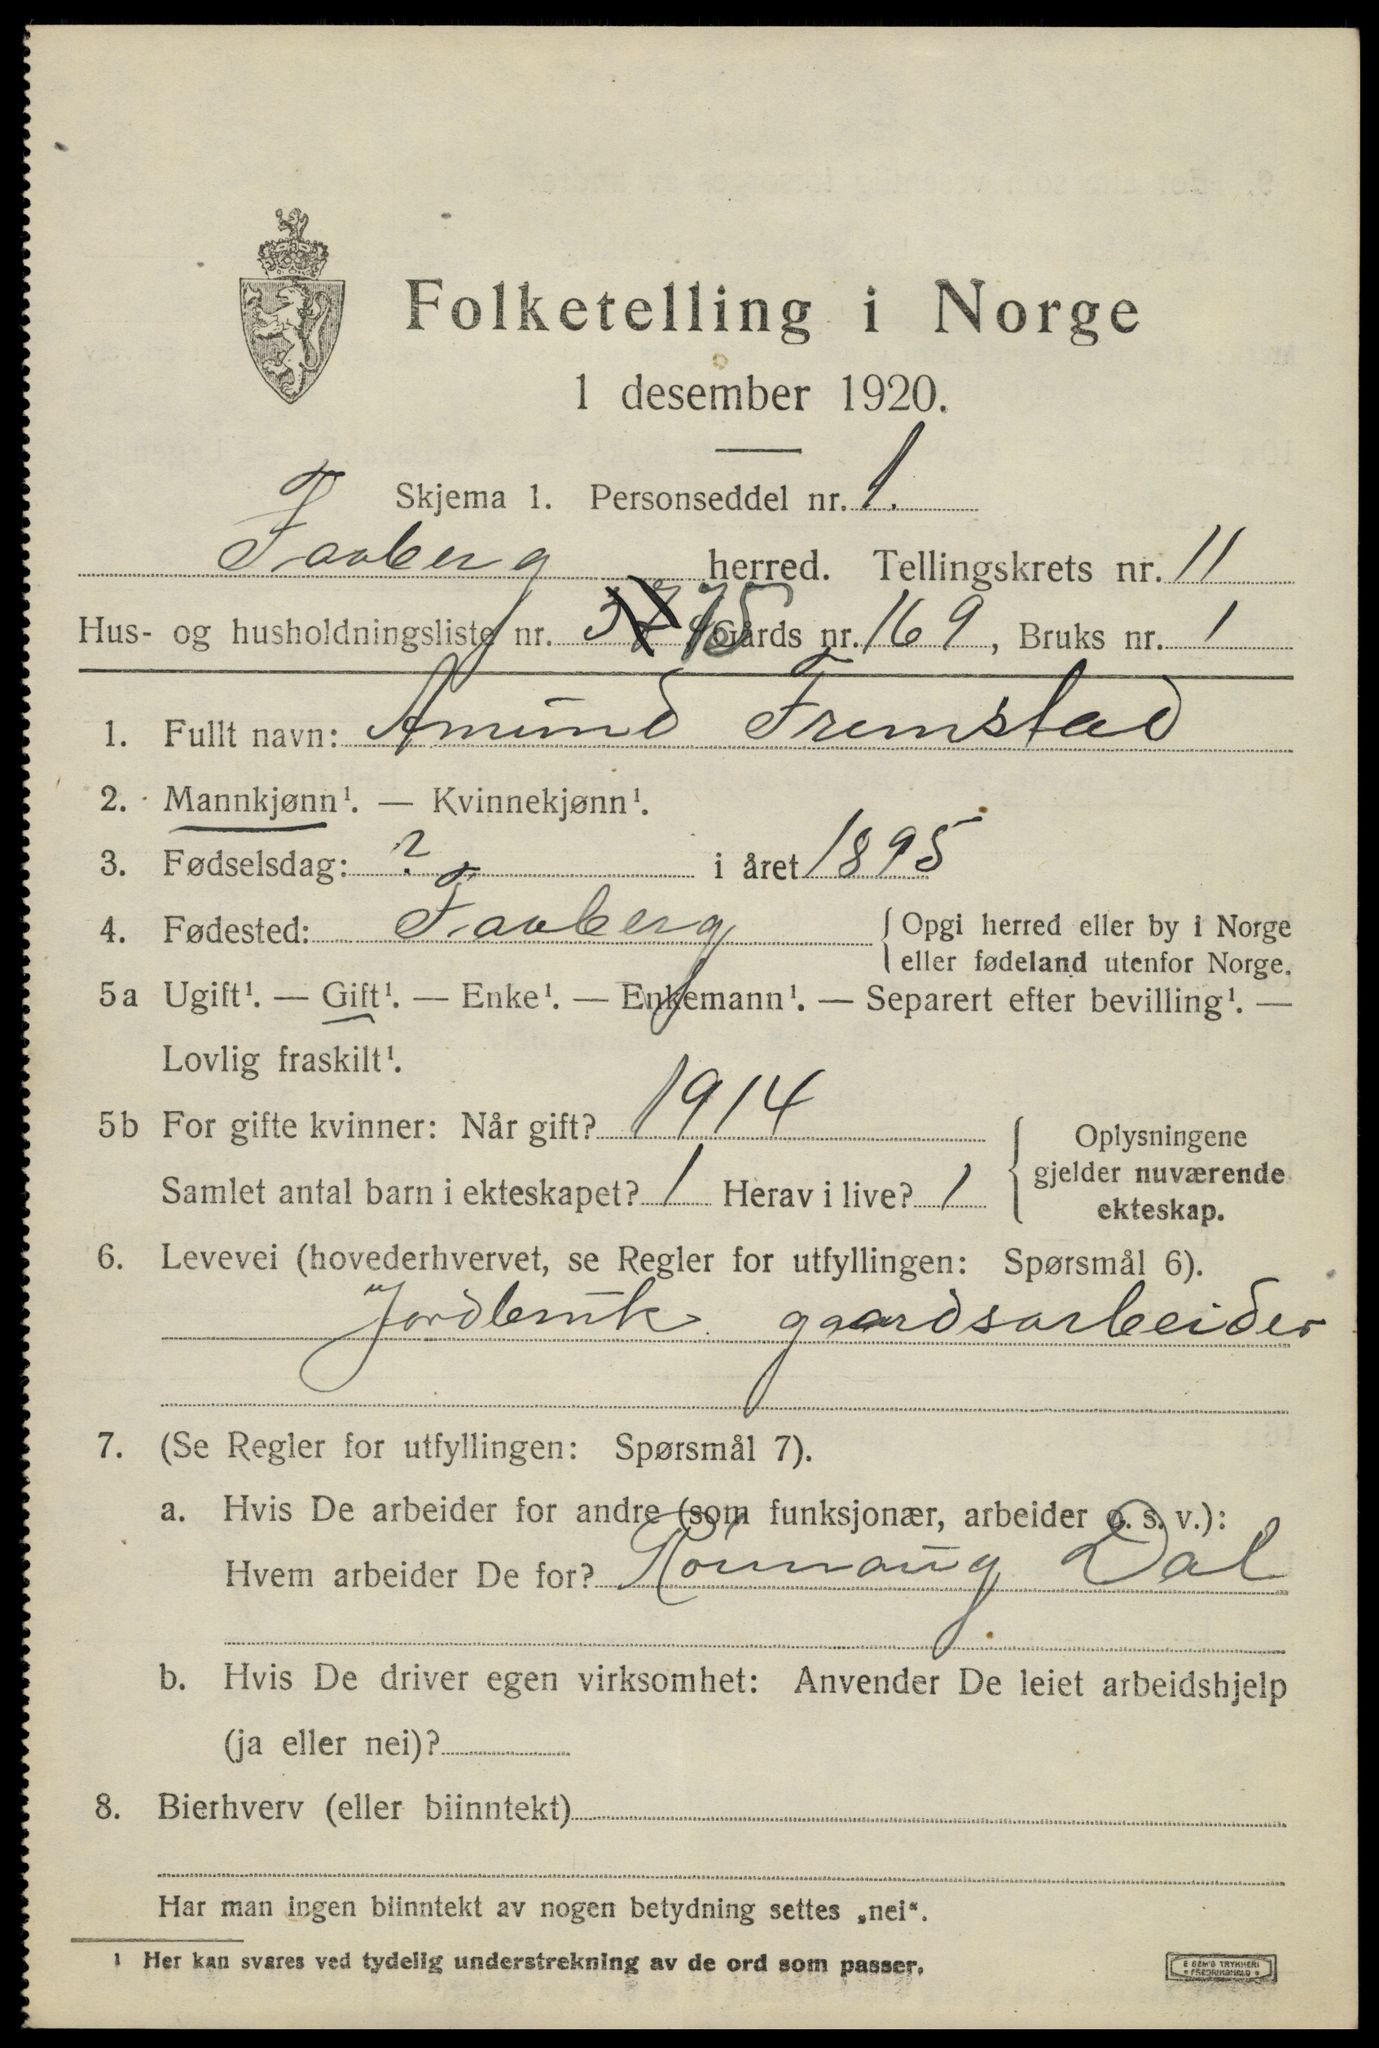 Folketelling i Norge
1 desember 1920.
Skjema 1. Personseddel nr. 1.
Faaberg herred. Tellingskrets nr. 11
Hus- og husholdningsliste nr. 75 Gårds nr. 169, Bruks nr. 1
1. Fullt navn: Amund Fremstad
2. Mannkjønn¹. — Kvinnekjønn¹.
3. Fødselsdag: ? i året 1895
4. Fødested: Faaberg {Opgi herred eller by i Norge
eller fødeland utenfor Norge.
5a Ugift¹. — Gift¹. — Enke¹. — Enkemann¹. — Separert efter bevilling¹. —
Lovlig fraskilt¹.
5b For gifte kvinner: Når gift? 1914
Samlet antal barn i ekteskapet? 1 Herav i live? 1
Oplysningene
gjelder nuværende
ekteskap.
6. Levevei (hovederhvervet, se Regler for utfyllingen: Spørsmål 6).
Jordbruk gaardsarbeider
7. (Se Regler for utfyllingen: Spørsmål 7).
a. Hvis De arbeider for andre (som funksjonær, arbeider o. s. v.):
Hvem arbeider De for? Dal
b. Hvis De driver egen virksomhet: Anvender De leiet arbeidshjelp
(ja eller nei)?
8. Bierhverv (eller biinntekt)
Har man ingen biinntekt av nogen betydning settes „nei“.
¹ Her kan svares ved tydelig understrekning av de ord som passer.